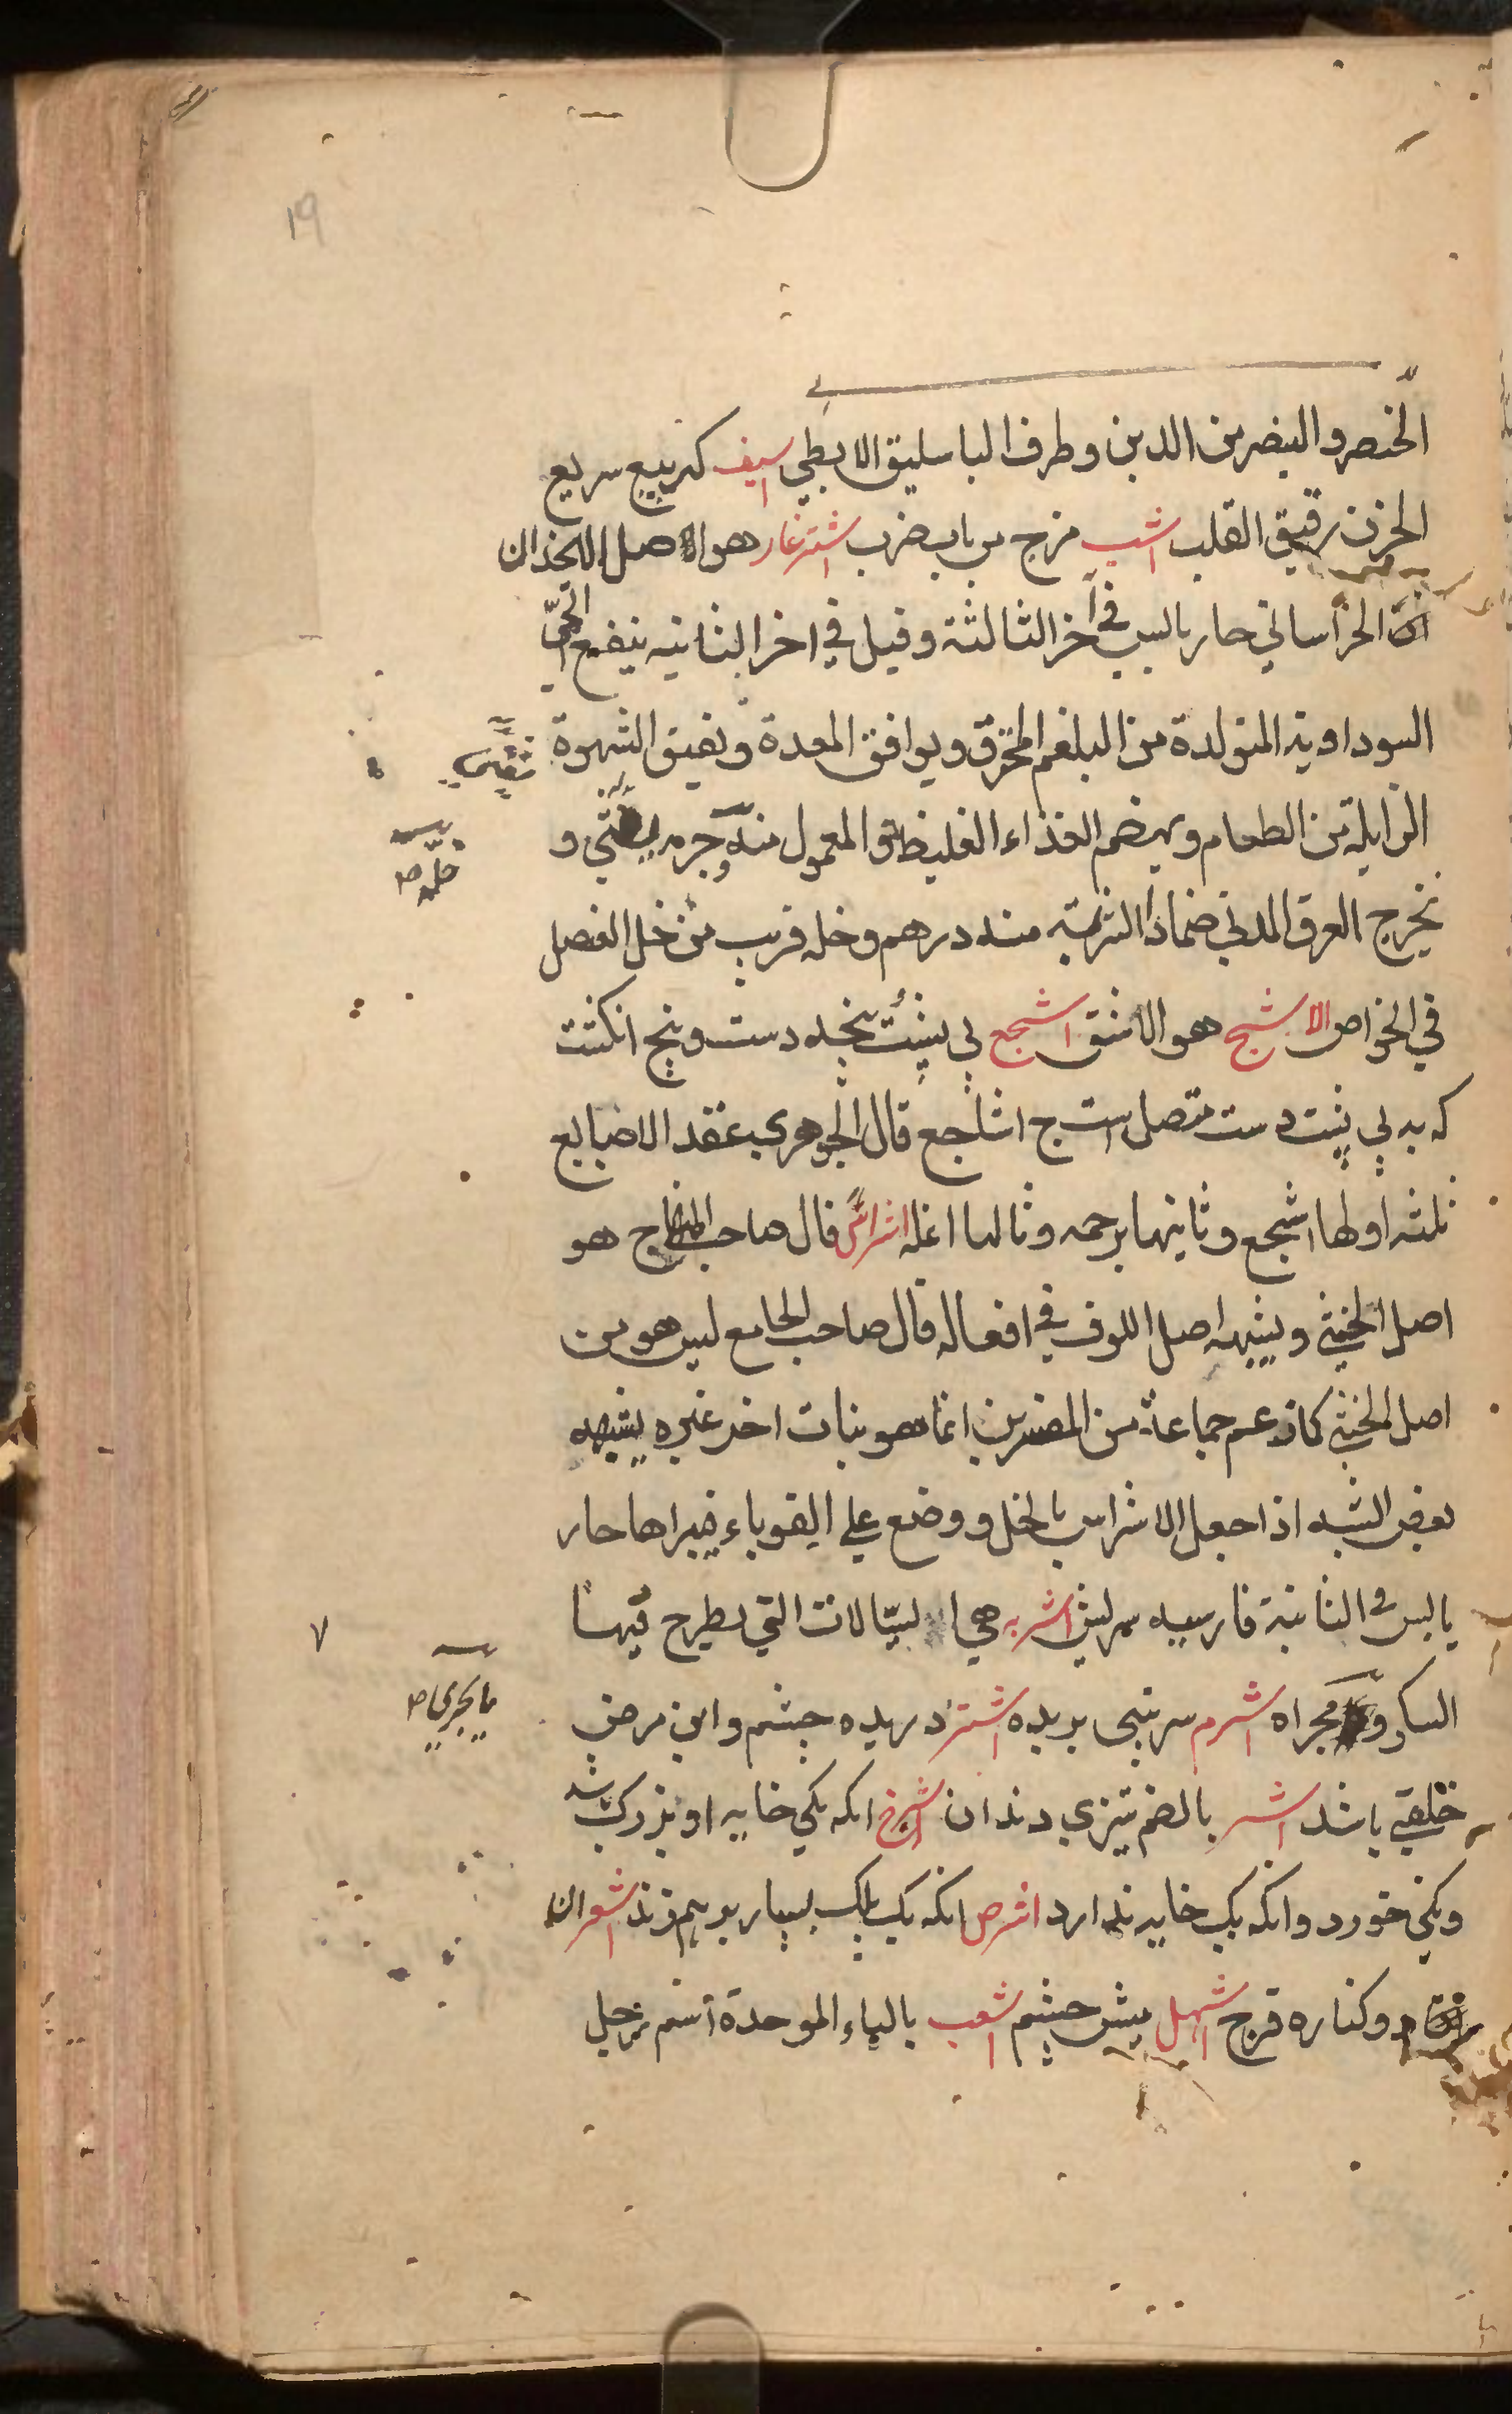 ١٩
الخنصر والبنصر من الدين وطرف الباسليق الابطي اسيف كربيع سريع
الحزن رقيق القلب اشب مزج من باب ضرب اشترغار هو الاصل الانجذان
الخراساني حار يابس في آخر الثالثة وقيل في اخر الثانيه ينفع الحمي
السوداوية المتولدة من البلغم المحترق ويوافق المعدة ويفيق الشهوة
الزايلة من الطعام ويهضم الغذاء الغليظ والمعمول منه وجرمه يغثي و
يخرج العرق المدني ضمادا الشربة منه درهم وخله قريب من خل العنصل
في الخواص الاشج هو الاشق اشجع پي پشت پنجه دست وپنج انكشت
كه به پي پشت دست متصل است ج اشاجع قال الجوهري عقد الاصابع
ثلثه اولها اشجع وثانيها برجمه وثالثها انمله اشراس قال صاحب المنهاج هو
اصل الخنثي ويشبه اصل اللوف في افعاله قال صاحب الجامع ليس هو من
اصل الخنثي كما زعم جماعة من المفسرين انما هو نبات اخر غيره يشبهه
بعض الشبه اذا جعل الاشراس بالخل ووضع علي القوباء فيبراها حار
يابس في الثانية فارسيه سريش اشربه هي السيالات التي يطرح فيها
السكر و مجراه اشرم سر بيني بريده اشتر دريده چشم واين مرض
خلقي باشد اشر بالضم تيزي دندان اشرج انكه يكي خايه او بزرك باشد
ويكي خورد وانكه يك خايه ندارد اشرص انكه يك پلك بسيار بر هم زند اشعران
دو كناره فرج اشهل ميش چشم اشعب بالباء الموحدة اسم رجل
خله ص
ما يجري ص
٧